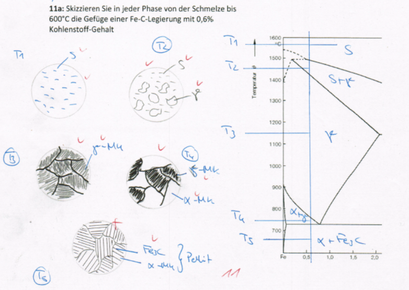 11a: Skizzieren Sie in jeder Phase von der Schmelze bis
600°C die Gefüge einer Fe-C-Legierung mit 0,6%
Kohlenstoff-Gehalt
T1
S
T2
S
γ
T3
γ-MK
T4
γ-MK
α-MK
T5
Fe3C
α-MK
} Perlit
11
T1
T2
T3
T4
T5
Temperatur
1600
1500
1400
1300
1200
1100
1000
900
800
700
Fe
0,5
1,0
1,5
2,0
S
S+γ
γ
α+γ
α+Fe3C